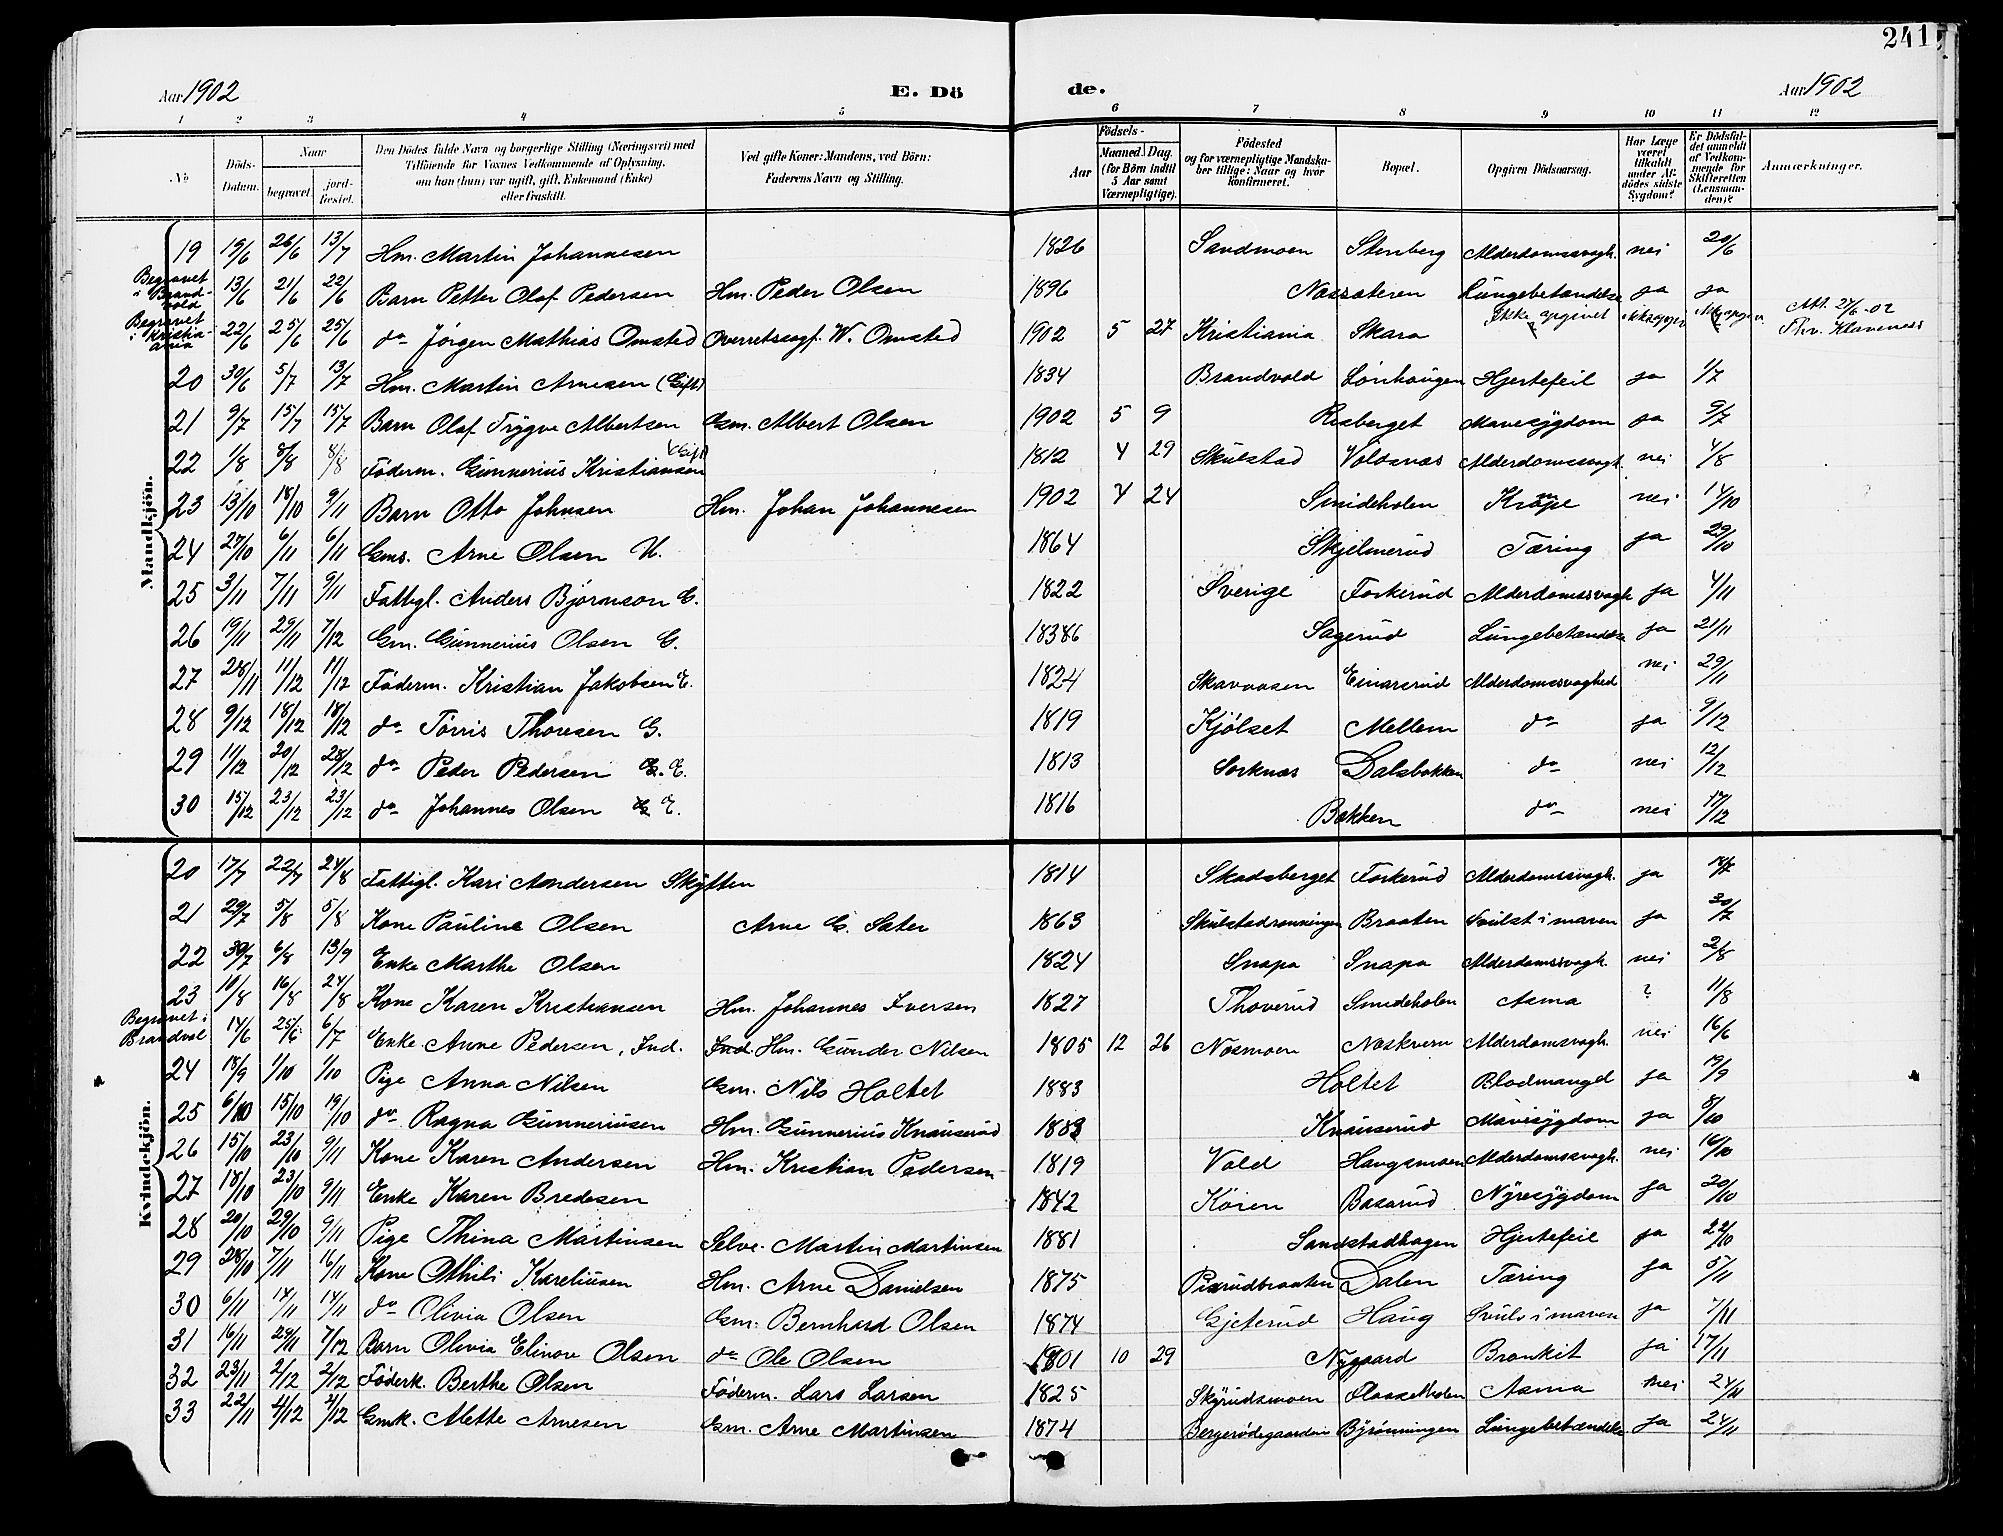 241
Aar 1902 E. Dö de. Aar 1902
1 2 3 4 5 6 7 8 9 10 11 12
No Döds-Datum. Naar begravet. jord-fæstet. Den Dödes fulde Navn og borgerlige Stilling (Næringsvei) med Tilföiende for Voxnes Vedkommende af Oplysning, om han (hun) var ugift, gift, Enkemand (Enke) eller fraskilt. Ved gifte Koner: Mandens, ved Börn: Faderens Navn og Stilling. Födsels- Aar Maaned. Dag. (for Börn indtil 5 Aar samt Værnepligtige). Födested og for værnepligtige Mandskaber tillige: Naar og hvor konfirmeret. Bopæl. Opgiven Dödsaarsag. Har Læge været tilkaldt under Afdödes sidste Sygdom? Er Dödsfaldet anmeldt af Vedkommende for Skifteretten (Lensmanden)? Anmærkninger.
Mandkjön.
19 19/6 26/6 13/7 Hm. Martin Johannesen 1826 Sandmoen Stenberg Alderdomssvagh. nei 20/6
Begravet i Brandvold 13/6 21/6 22/6 Barn Petter Olaf Pedersen Hm. Peder Olsen 1896 Næssæteren Lungebetændelse ja ja
Begravet i Kristiania 22/6 25/6 25/6 do Jörgen Mathias Omsted Overretssagf. W. Omsted 1902 5 27 Kristiania Skara Ikke opgivet Att. 27/6-02 Thv. Klaveness
20 30/6 5/7 13/7 Hm. Martin Arnesen (Gift) 1834 Brandvold Lönhaugen Hjertefeil ja 1/7
21 9/7 15/7 15/7 Barn Olaf Trygve Albertsen Gm. Albert Olsen 1902 5 9 Risberget Mavesygdom ja 9/7
22 1/8 8/8 8/8 Föderm. Gunnerius Kristiansen (Gift) 1812 4 29 Skulstad Voldsnæs Alderdomssvagh. nei 4/8
23 13/10 18/10 9/11 Barn Otto Johnsen Hm. Johan Johannesen 1902 7 24 Smideholen Krampe nei 14/10
24 27/10 6/11 6/11 Gms. Arne Olsen U. 1864 Skjelmerud Tæring ja 29/10
25 3/11 7/11 9/11 Fattigl. Anders Björnson E. 1822 Sverige Forkerud Alderdomssvagh ja 4/11
26 19/11 29/11 7/12 Gm. Gunnerius Olsen G. 18386 Sagerud Lungebetændelse ja 21/11
27 28/11 11/12 11/12 Föderm. Kristian Jakobsen E. 1824 Skavaasen Einarsrud Alderdomssvaghed nei 29/11
28 9/12 18/12 18/12 do Törris Thoresen G. 1819 Kjölset Mellem do ja 9/12
29 11/12 20/12 28/12 do Peder Pedersen E. 1813 Sorknæs Dalsbakken do nei 12/12
30 15/12 23/12 23/12 do Johannes Olsen E. 1816 Bakken do nei 17/12
Kvindekjön.
20 17/7 22/7 24/8 Fattigl. Kari Andersen Skytten 1814 Skadsberget Forkerud Alderdomssvagh. ja 18/7
21 29/7 5/8 5/8 Kone Pauline Olsen Arne G. Sater 1863 Skulstadrønningen Braaten Svulst i maven ja 30/7
22 30/7 6/8 13/9 Enke Marthe Olsen 1824 Snapa Snapa Alderdomssvagh. nei 2/8
23 10/8 16/8 24/8 Kone Karen Kristiansen Hm. Johannes Iversen 1827 Thoverud Smideholen Asma ? 11/8
Begravet i Brandvol 14/6 25/6 6/7 Enke Anne Pedersen, Ind. Ind. Hm. Gunder Nilsen 1805 12 26 Næsmoen Noskvern Alderdomsvagh. nei 16/6
24 18/9 1/10 1/10 Pige Anna Nilsen Gm. Nils Holtet 1883 Holtet Blodmangel ja 19/9
25 6/10 15/10 19/10 do Ragna Gunneriusen Hm. Gunnerius Knauserud 1883 Knauserud Mavesygdom ja 8/10
26 15/10 23/10 9/11 Kone Karen Andersen Hm. Kristian Pedersen 1819 Vold Haugsmoen Alderdomssvagh. nei 16/10
27 18/10 23/10 9/11 Enke Karen Bredesen 1842 Köien Basarud Nyresygdom ja 20/10
28 20/10 29/10 9/11 Pige Thina Martinsen Selve. Martin Martinsen 1881 Sandstadhagen Hjertefeil ja 22/10
29 28/10 7/11 16/11 Kone Othili Kareliusen Hm. Arne Danielsen 1875 Pixrudbraaten Dalen Tæring ja 5/11
30 6/11 14/11 14/11 do Olivia Olsen Gm. Bernhard Olsen 1874 Gjeterud Haug Svuls i maven ja 7/11
31 16/11 29/11 7/12 Barn Olivia Elinore Olsen do Ole Olsen 1901 10 29 Nygaard Bronkit ja 17/11
32 23/11 2/12 2/12 Föderk. Berthe Olsen Föderm. Lars Larsen 1825 Skyrudsmoen Flaasetholen Asma nei 24/11
33 22/11 4/12 4/12 Gmk. Mette Arnesen Gm. Arne Martinsen 1874 Bergerødegaarden Byrønningen Lungebetændelse ja 24/11